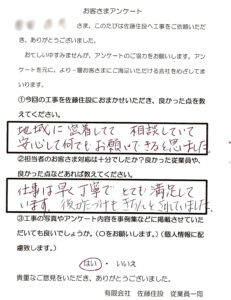 お客さまアンケート
さま、このたびは佐藤住設へ工事をご依頼いただ
き、ありがとうございました。
おていしゅすみませんが、アンケートのご協力をお願いします。アン
ケートを元に、より一層お客さまにご満足いただける会社をめざしてま
いります。
①今回の工事を佐藤住設におまかせいただき、良かった点を教
えてください。
地域に密着してて 相談していて
安心して何でもお願いできると思いました
②担当者のお客さま対応は十分でしたか?良かった従業員や、
良かった点などあれば教えてください。
仕事は早く丁寧で とても満足して
います。後かたづけもきちんとされていました。
③工事の写真やアンケート内容を事例集などに掲載させていた
だいても良いでしょうか。(〇をお願いします。)(個人情報に配
慮致します。)
はい ・ いいえ
貴重なご意見をいただき、ありがとうございました。
有限会社 佐藤住設 従業員一同